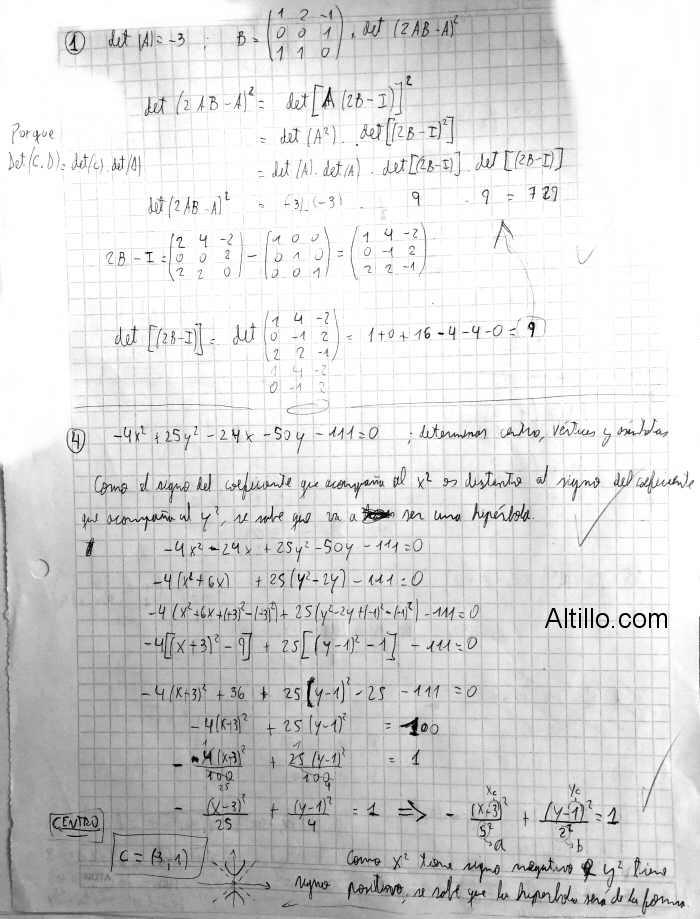 1 det (A) = -3 ; B = (1 2 -1 / 0 0 1 / 1 1 0) , det (2AB-A)²
det (2AB-A)² = det [A (2B-I)]²
Porque
= det (A²) . det [(2B-I)²]
Det (C.D) = det(C) . det(D)
= det (A) . det (A) . det [(2B-I)] . det [(2B-I)]
det (2AB-A)² = -3 . (-3) . 9 . 9 = 729
2B - I = (2 4 -2 / 0 0 2 / 2 2 0) - (1 0 0 / 0 1 0 / 0 0 1) = (1 4 -2 / 0 -1 2 / 2 2 -1)
det [(2B-I)] = det (1 4 -2 / 0 -1 2 / 2 2 -1) = 1+0+16-4-4-0 = 9
1 4 -2
0 -1 2
4 -4x² + 25y² - 24x - 50y - 111 = 0 ; determinar centro, vértices y asíntotas
Como el signo del coeficiente que acompaña al x² es distinto al signo del coeficiente
que acompaña al y², se sabe que va a ser una hipérbola.
-4x² - 24x + 25y² - 50y - 111 = 0
-4(x²+6x) + 25(y²-2y) - 111 = 0
-4(x²+6x+(+3)²-(-3)²) + 25(y²-2y+(-1)²-(-1)²) - 111 = 0
Altillo.com
-4[(x+3)²-9] + 25[(y-1)²-1] - 111 = 0
-4(x+3)² + 36 + 25(y-1)² - 25 - 111 = 0
-4(x+3)² + 25(y-1)² = 100
- 4(x+3)²/100 + 25(y-1)²/100 = 1
- (x-3)²/25 + (y-1)²/4 = 1 ⇒ - (x-3)²/5² + (y-1)²/2² = 1
xc yc
a b
CENTRO
C = (3, 1)
Como x² tiene signo negativo y y² tiene
signo positivo, se sabe que la hipérbola será de la forma
NOTA